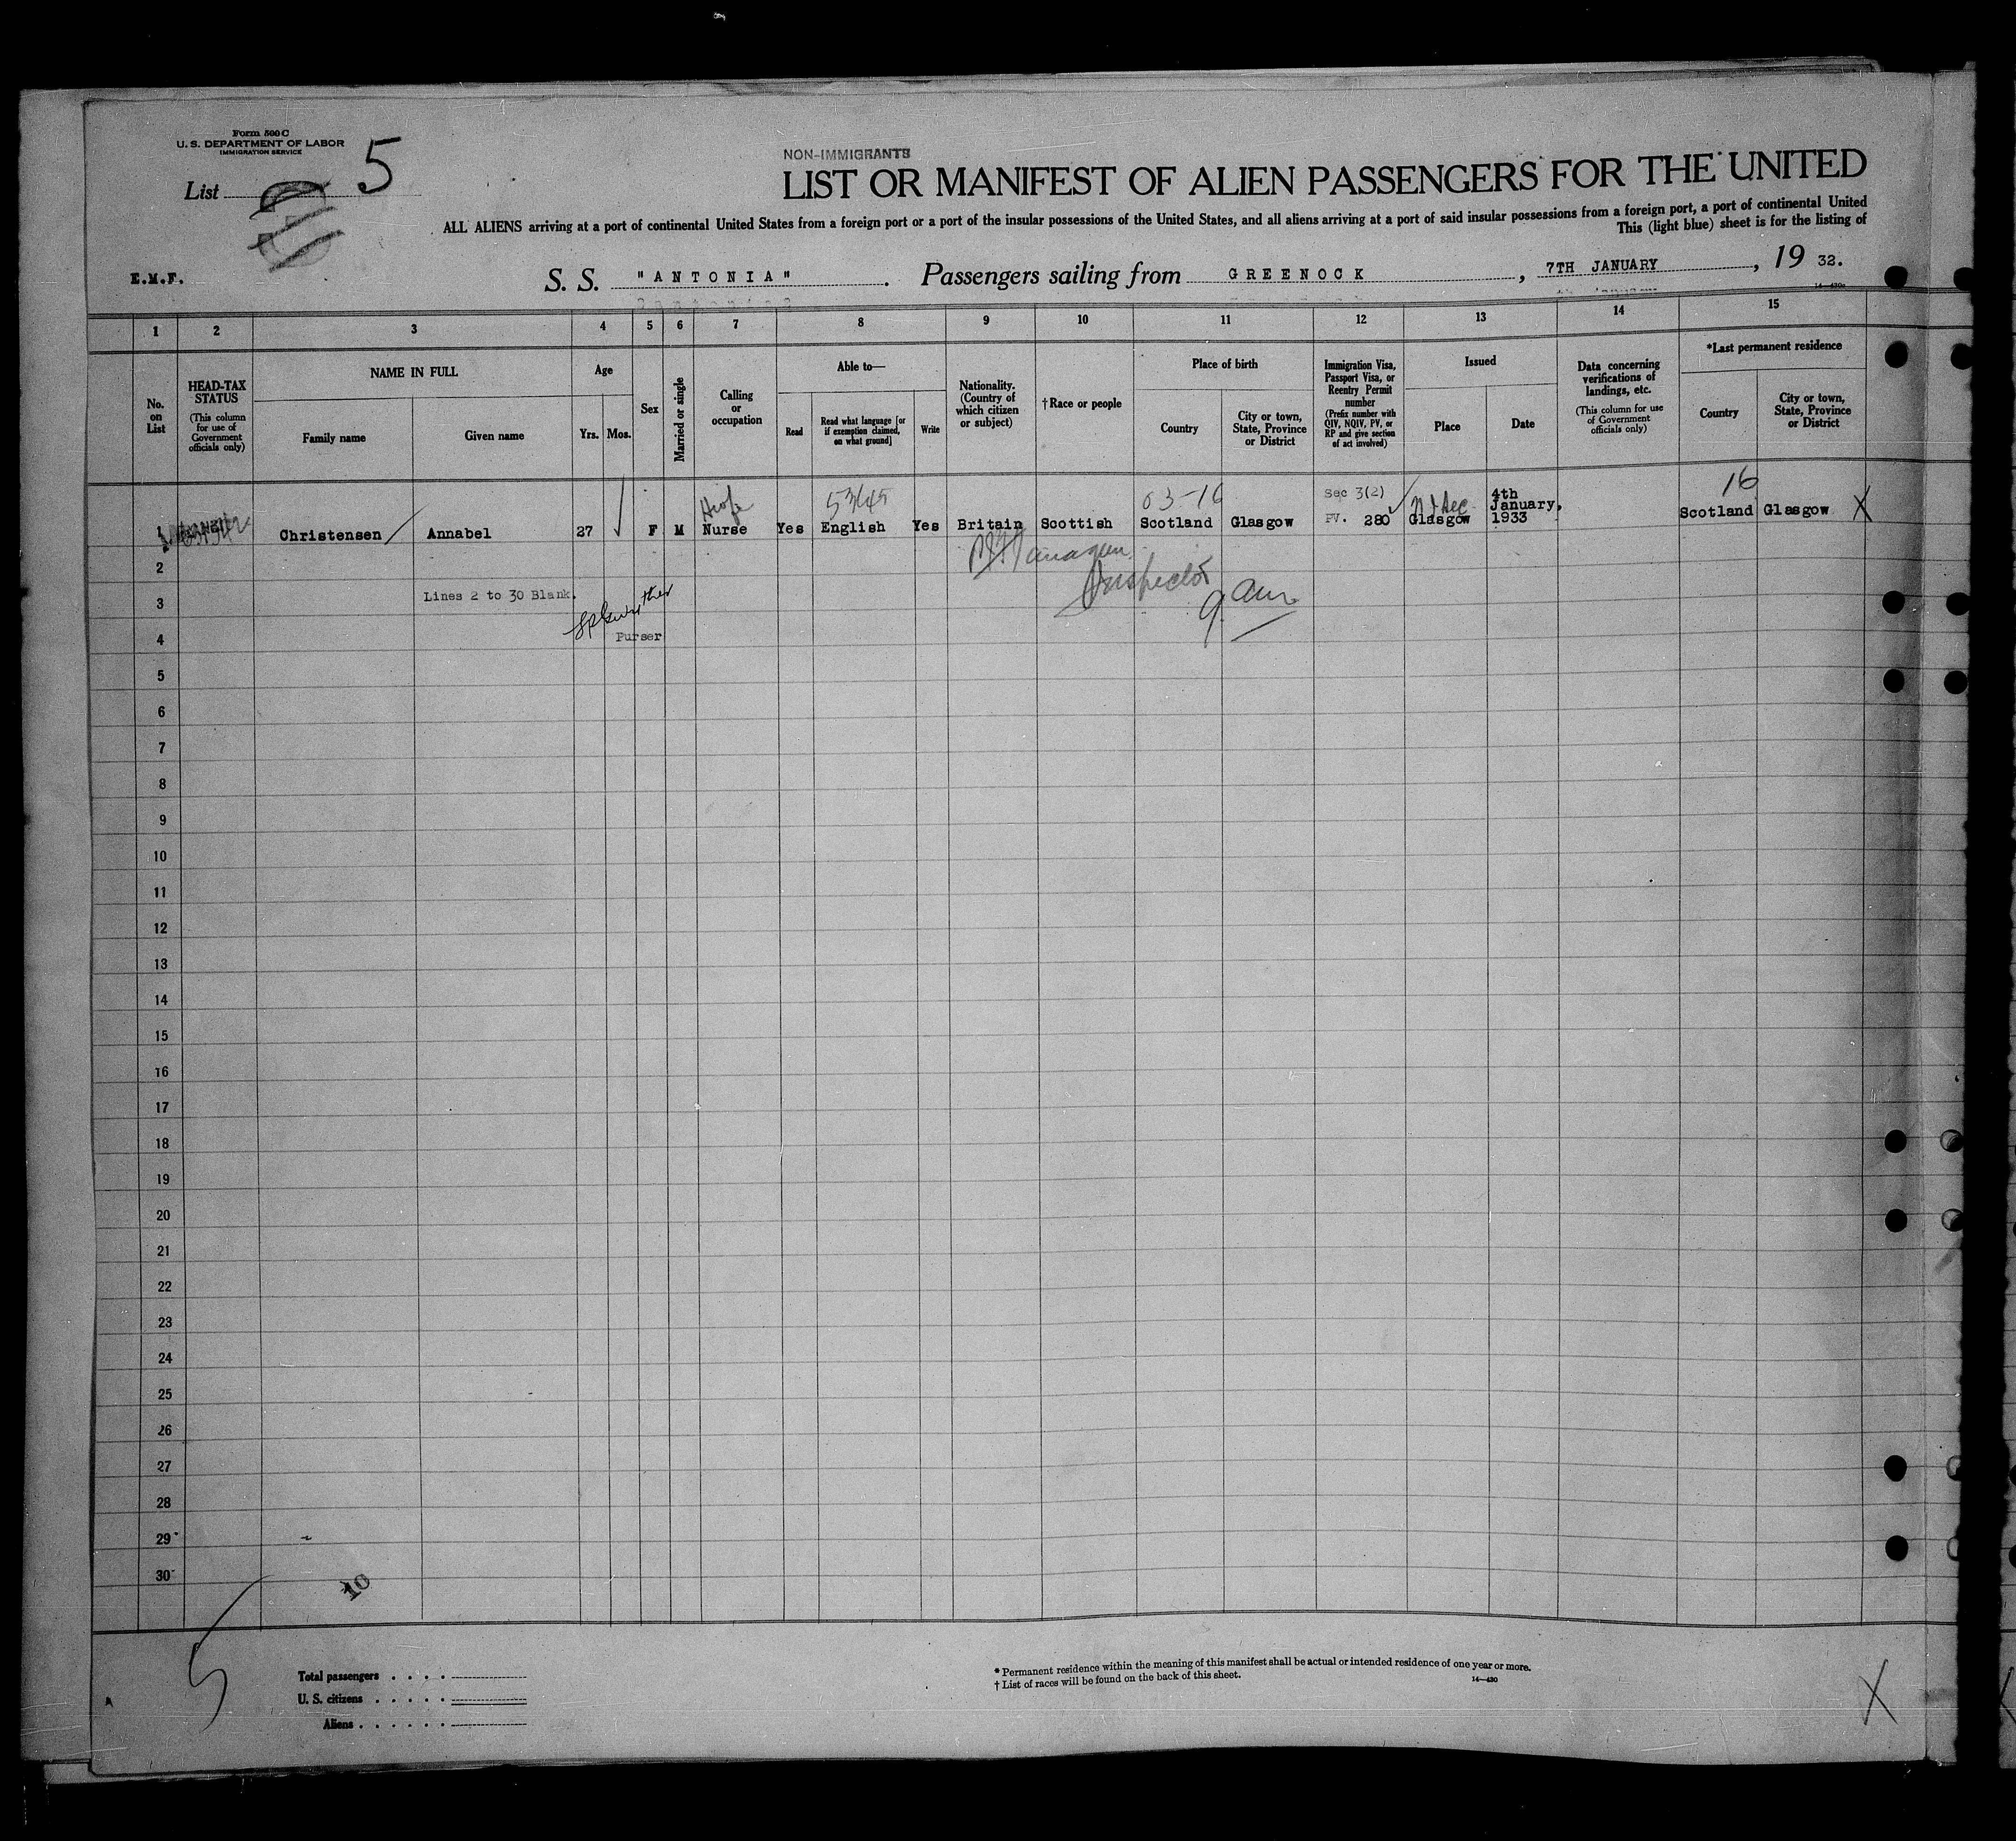 Form 500 C
U. S. DEPARTMENT OF LABOR
IMMIGRATION SERVICE
List 5
NON-IMMIGRANTS
LIST OR MANIFEST OF ALIEN PASSENGERS FOR THE UNITED
ALL ALIENS arriving at a port of continental United States from a foreign port or a port of the insular possessions of the United States, and all aliens arriving at a port of said insular possessions from a foreign port, a port of continental United
This (light blue) sheet is for the listing of
E.M.F.
S. S. "ANTONIA". Passengers sailing from GREENOCK, 7TH JANUARY, 19 32.
1 2 3 4 5 6 7 8 9 10 11 12 13 14 15
No. on List
HEAD-TAX STATUS
(This column for use of Government officials only)
NAME IN FULL
Family name
Given name
Age
Yrs. Mos.
Sex
Married or single
Calling or occupation
Able to—
Read
Read what language [or if exemption claimed, on what ground]
Write
Nationality. (Country of which citizen or subject)
†Race or people
Place of birth
Country
City or town, State, Province or District
Immigration Visa, Passport Visa, or Reentry Permit number
(Prefix number with QIV, NQIV, PV, or RP and give section of act involved)
Issued
Place
Date
Data concerning verifications of landings, etc.
(This column for use of Government officials only)
*Last permanent residence
Country
City or town, State, Province or District
5345 03-16 Sec 3(2) 4th January, 16
1 Christensen Annabel 27 F M Nurse Yes English Yes Britain Scottish Scotland Glasgow PV. 280 Glasgow 1933 Scotland Glasgow X
2
Inspector
3 Lines 2 to 30 Blank.
4 Purser
5
6
7
8
9
10
11
12
13
14
15
16
17
18
19
20
21
22
23
24
25
26
27
28
29
30
10
5
Total passengers
U. S. citizens
Aliens
* Permanent residence within the meaning of this manifest shall be actual or intended residence of one year or more.
† List of races will be found on the back of this sheet.
14—430
X